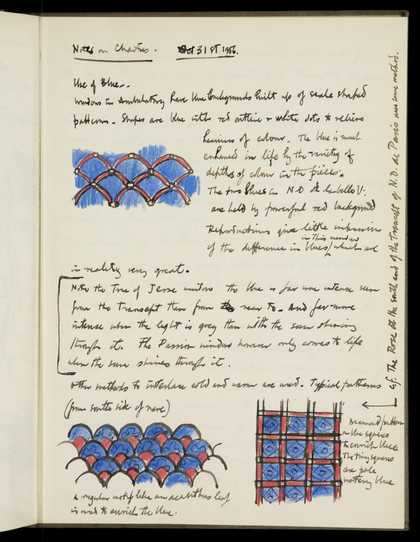 Notes on Chartres. Oct 31st 1956.
Use of Blue.
Windows in Ambulatory have blue backgrounds built up of scale shaped
patterns. Shapes are blue with red outline & white dots to relieve
heaviness of colour. The blue is much
enhanced in life by the variety of
depths of colour in the pieces.
The two blues in N.D. de la belle V.
are held by powerful red background
Reproductions give little impression
of the difference in blues in this window which are
in reality very great.
Note the Tree of Jesse window the blue is far more intense seen
from the Transept than from near to. And far more
intense when the light is grey than with the sun shining
through it. The Passion window however only comes to life
when the sun shines through it.
Other methods to interlace cold and warm are used. Typical patterns
(from south side of nave)
diamond pattern
in blue squares
to enrich blue
The tiny squares
are pale
watery blue
a regular motif like an acanthus leaf
is used to enrich the blue.
c.f. The Rose at the south end of the Transept of N.D. de Paris uses same method.